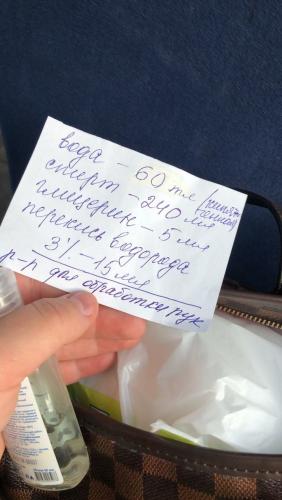 вода – 60 мл (кипяченная)
спирт – 240 мл
глицерин – 5 мл
перекись водорода
3% – 15 мл
р-р для обработки рук